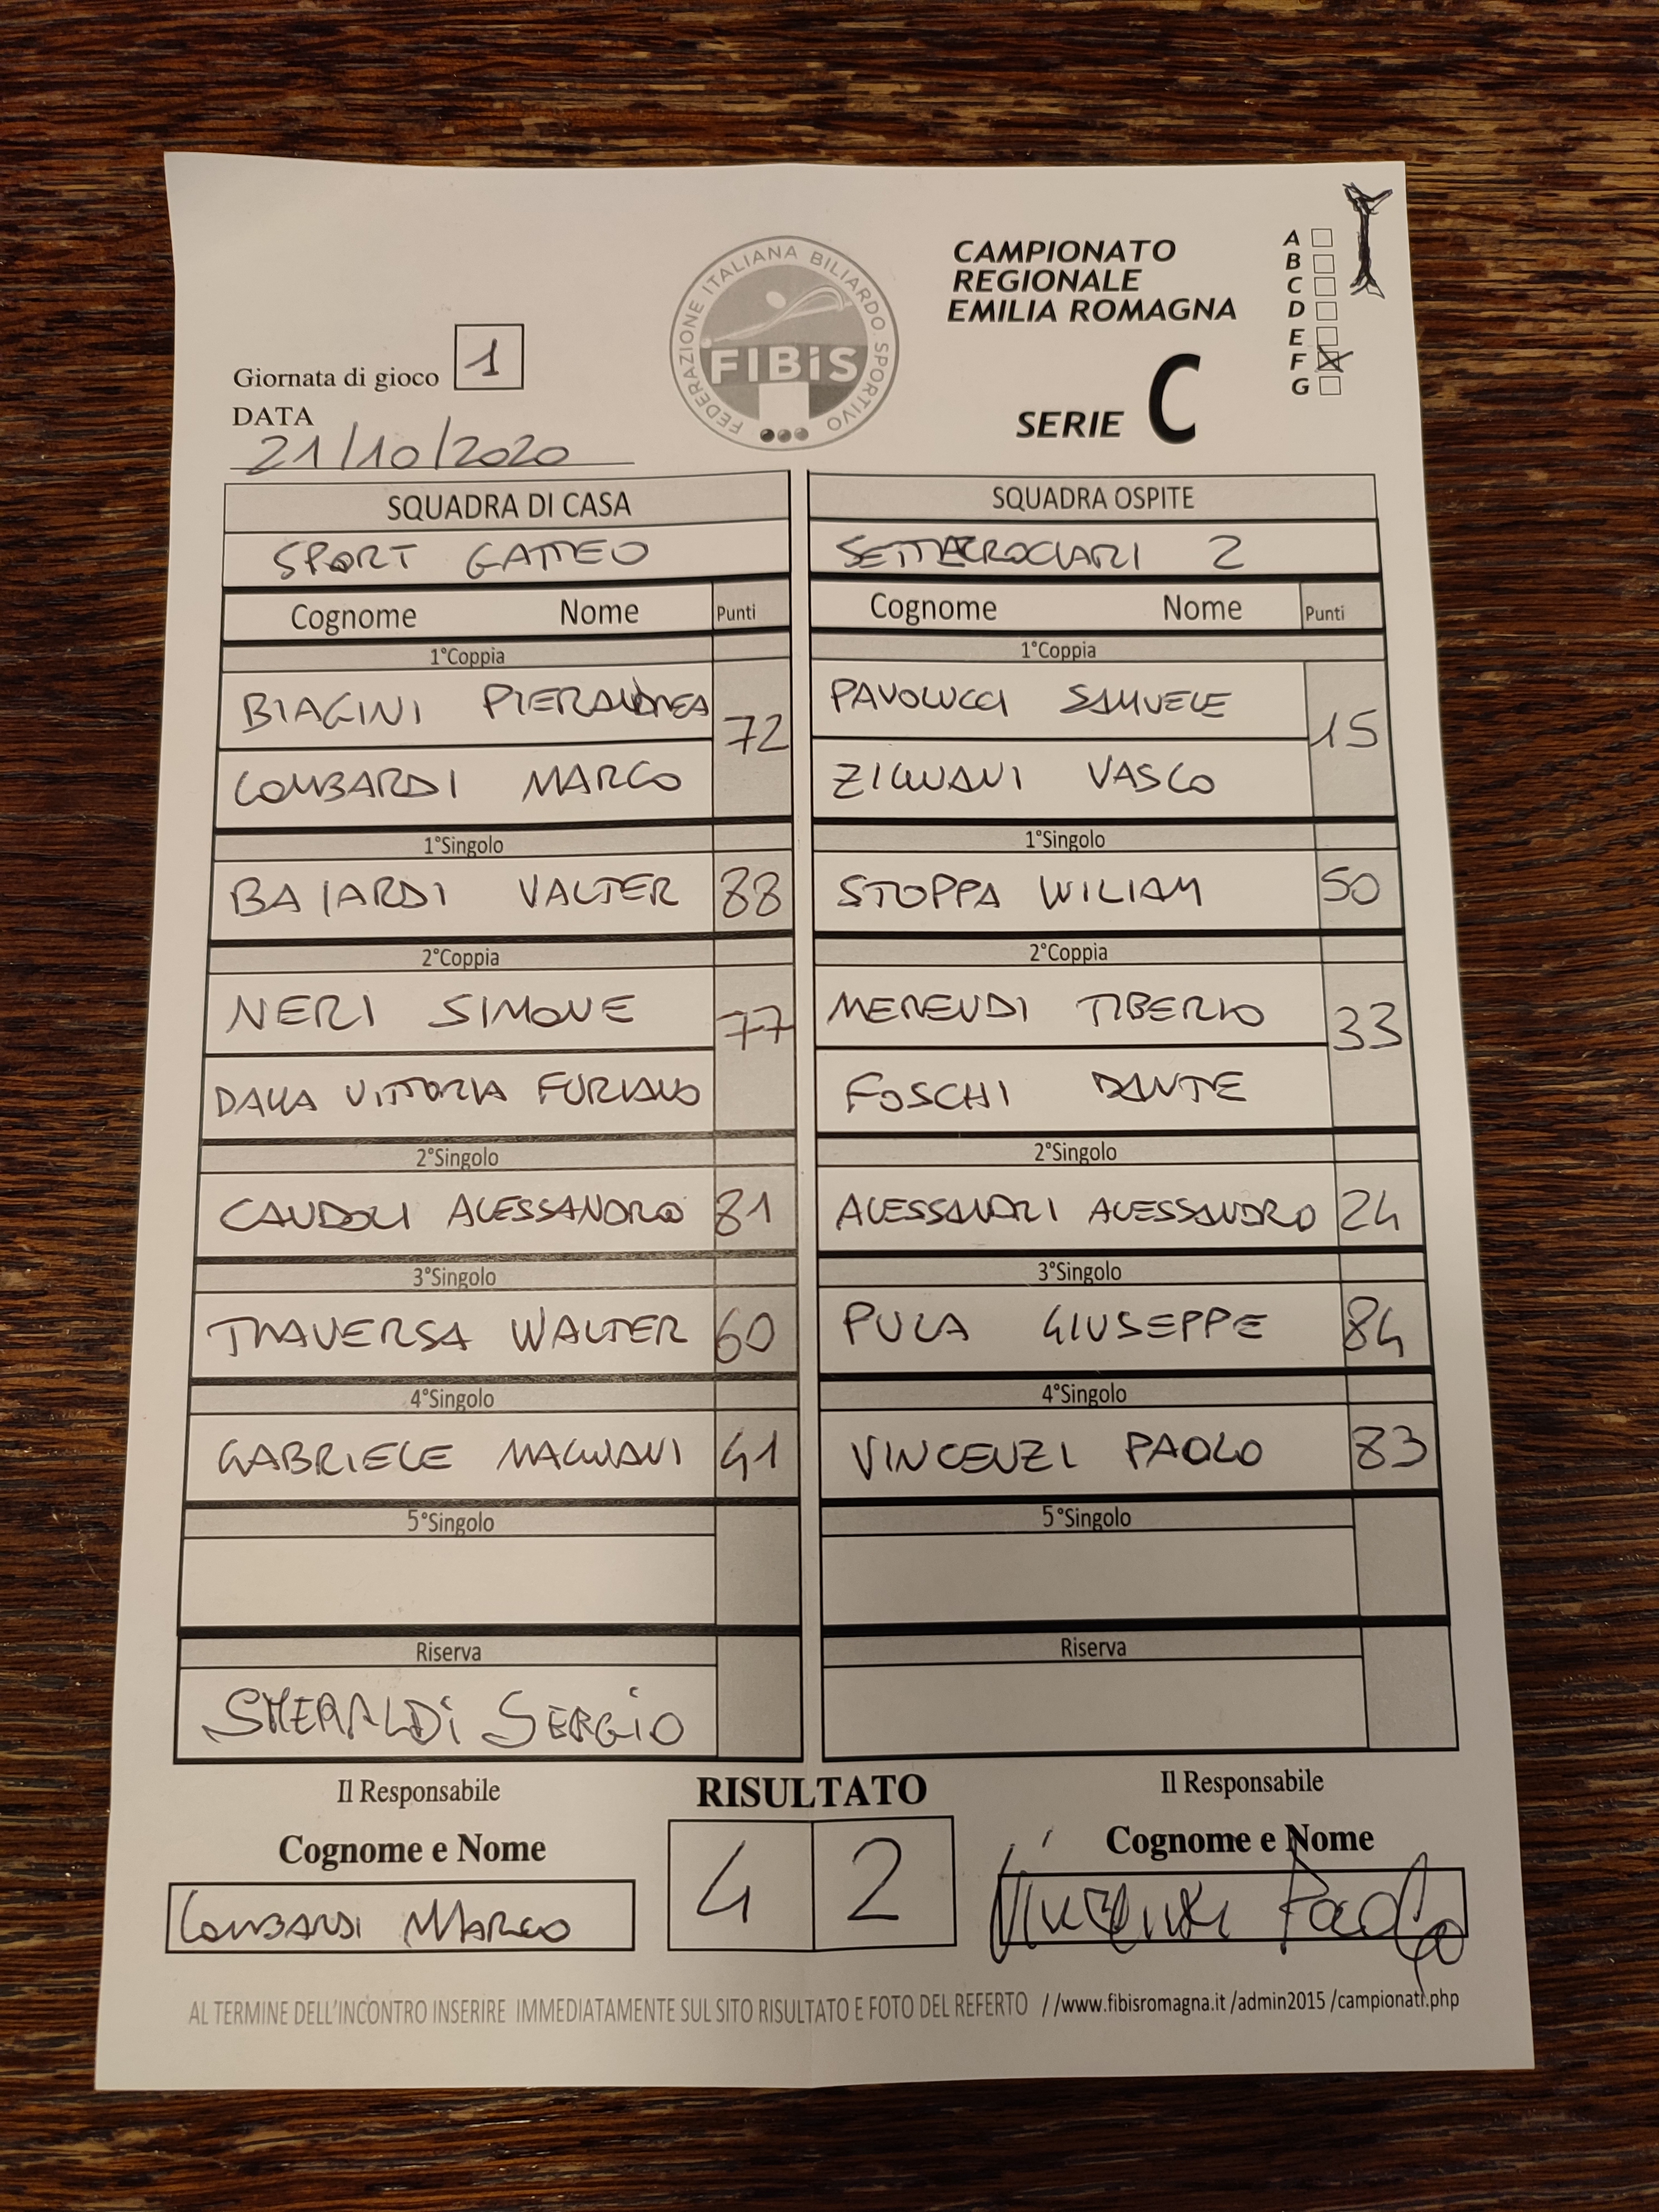 FEDERAZIONE ITALIANA BILIARDO SPORTIVO
FIBiS
CAMPIONATO
REGIONALE
EMILIA ROMAGNA
SERIE C
A
B
C
D
E
F X
G
Giornata di gioco 1
DATA
21/10/2020
SQUADRA DI CASA SQUADRA OSPITE
SPORT GATTEO SETTECROCIARI 2
Cognome Nome Punti Cognome Nome Punti
1°Coppia 1°Coppia
BIAGINI PIERANDREA 72 PAVOLUCCI SAMUELE 15
LOMBARDI MARCO ZIGNANI VASCO
1°Singolo 1°Singolo
BAIARDI VALTER 88 STOPPA WILIAM 50
2°Coppia 2°Coppia
NERI SIMONE 77 MERENDI TIBERIO 33
DALLA VITTORIA FURIANO FOSCHI DANTE
2°Singolo 2°Singolo
CANDOLI ALESSANDRO 81 ALESSANDRI ALESSANDRO 24
3°Singolo 3°Singolo
TRAVERSA WALTER 60 PULA GIUSEPPE 84
4°Singolo 4°Singolo
GABRIELE MAGNANI 41 VINCENZI PAOLO 83
5°Singolo 5°Singolo
Riserva Riserva
SMERALDI SERGIO
Il Responsabile RISULTATO Il Responsabile
Cognome e Nome 4 2 Cognome e Nome
LOMBARDI MARCO Vincenzi Paolo
AL TERMINE DELL'INCONTRO INSERIRE IMMEDIATAMENTE SUL SITO RISULTATO E FOTO DEL REFERTO //www.fibisromagna.it /admin2015 /campionati.php